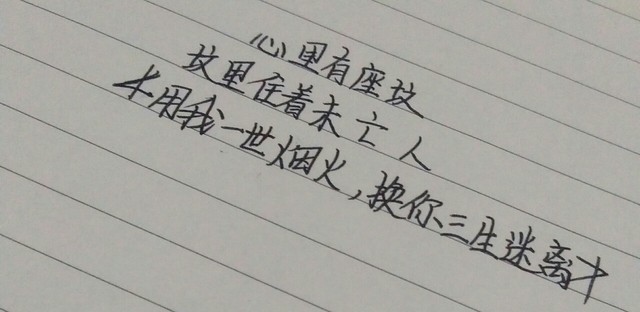 心里有座坟
坟里住着未亡人
<用我一世烟火,换你三生迷离>